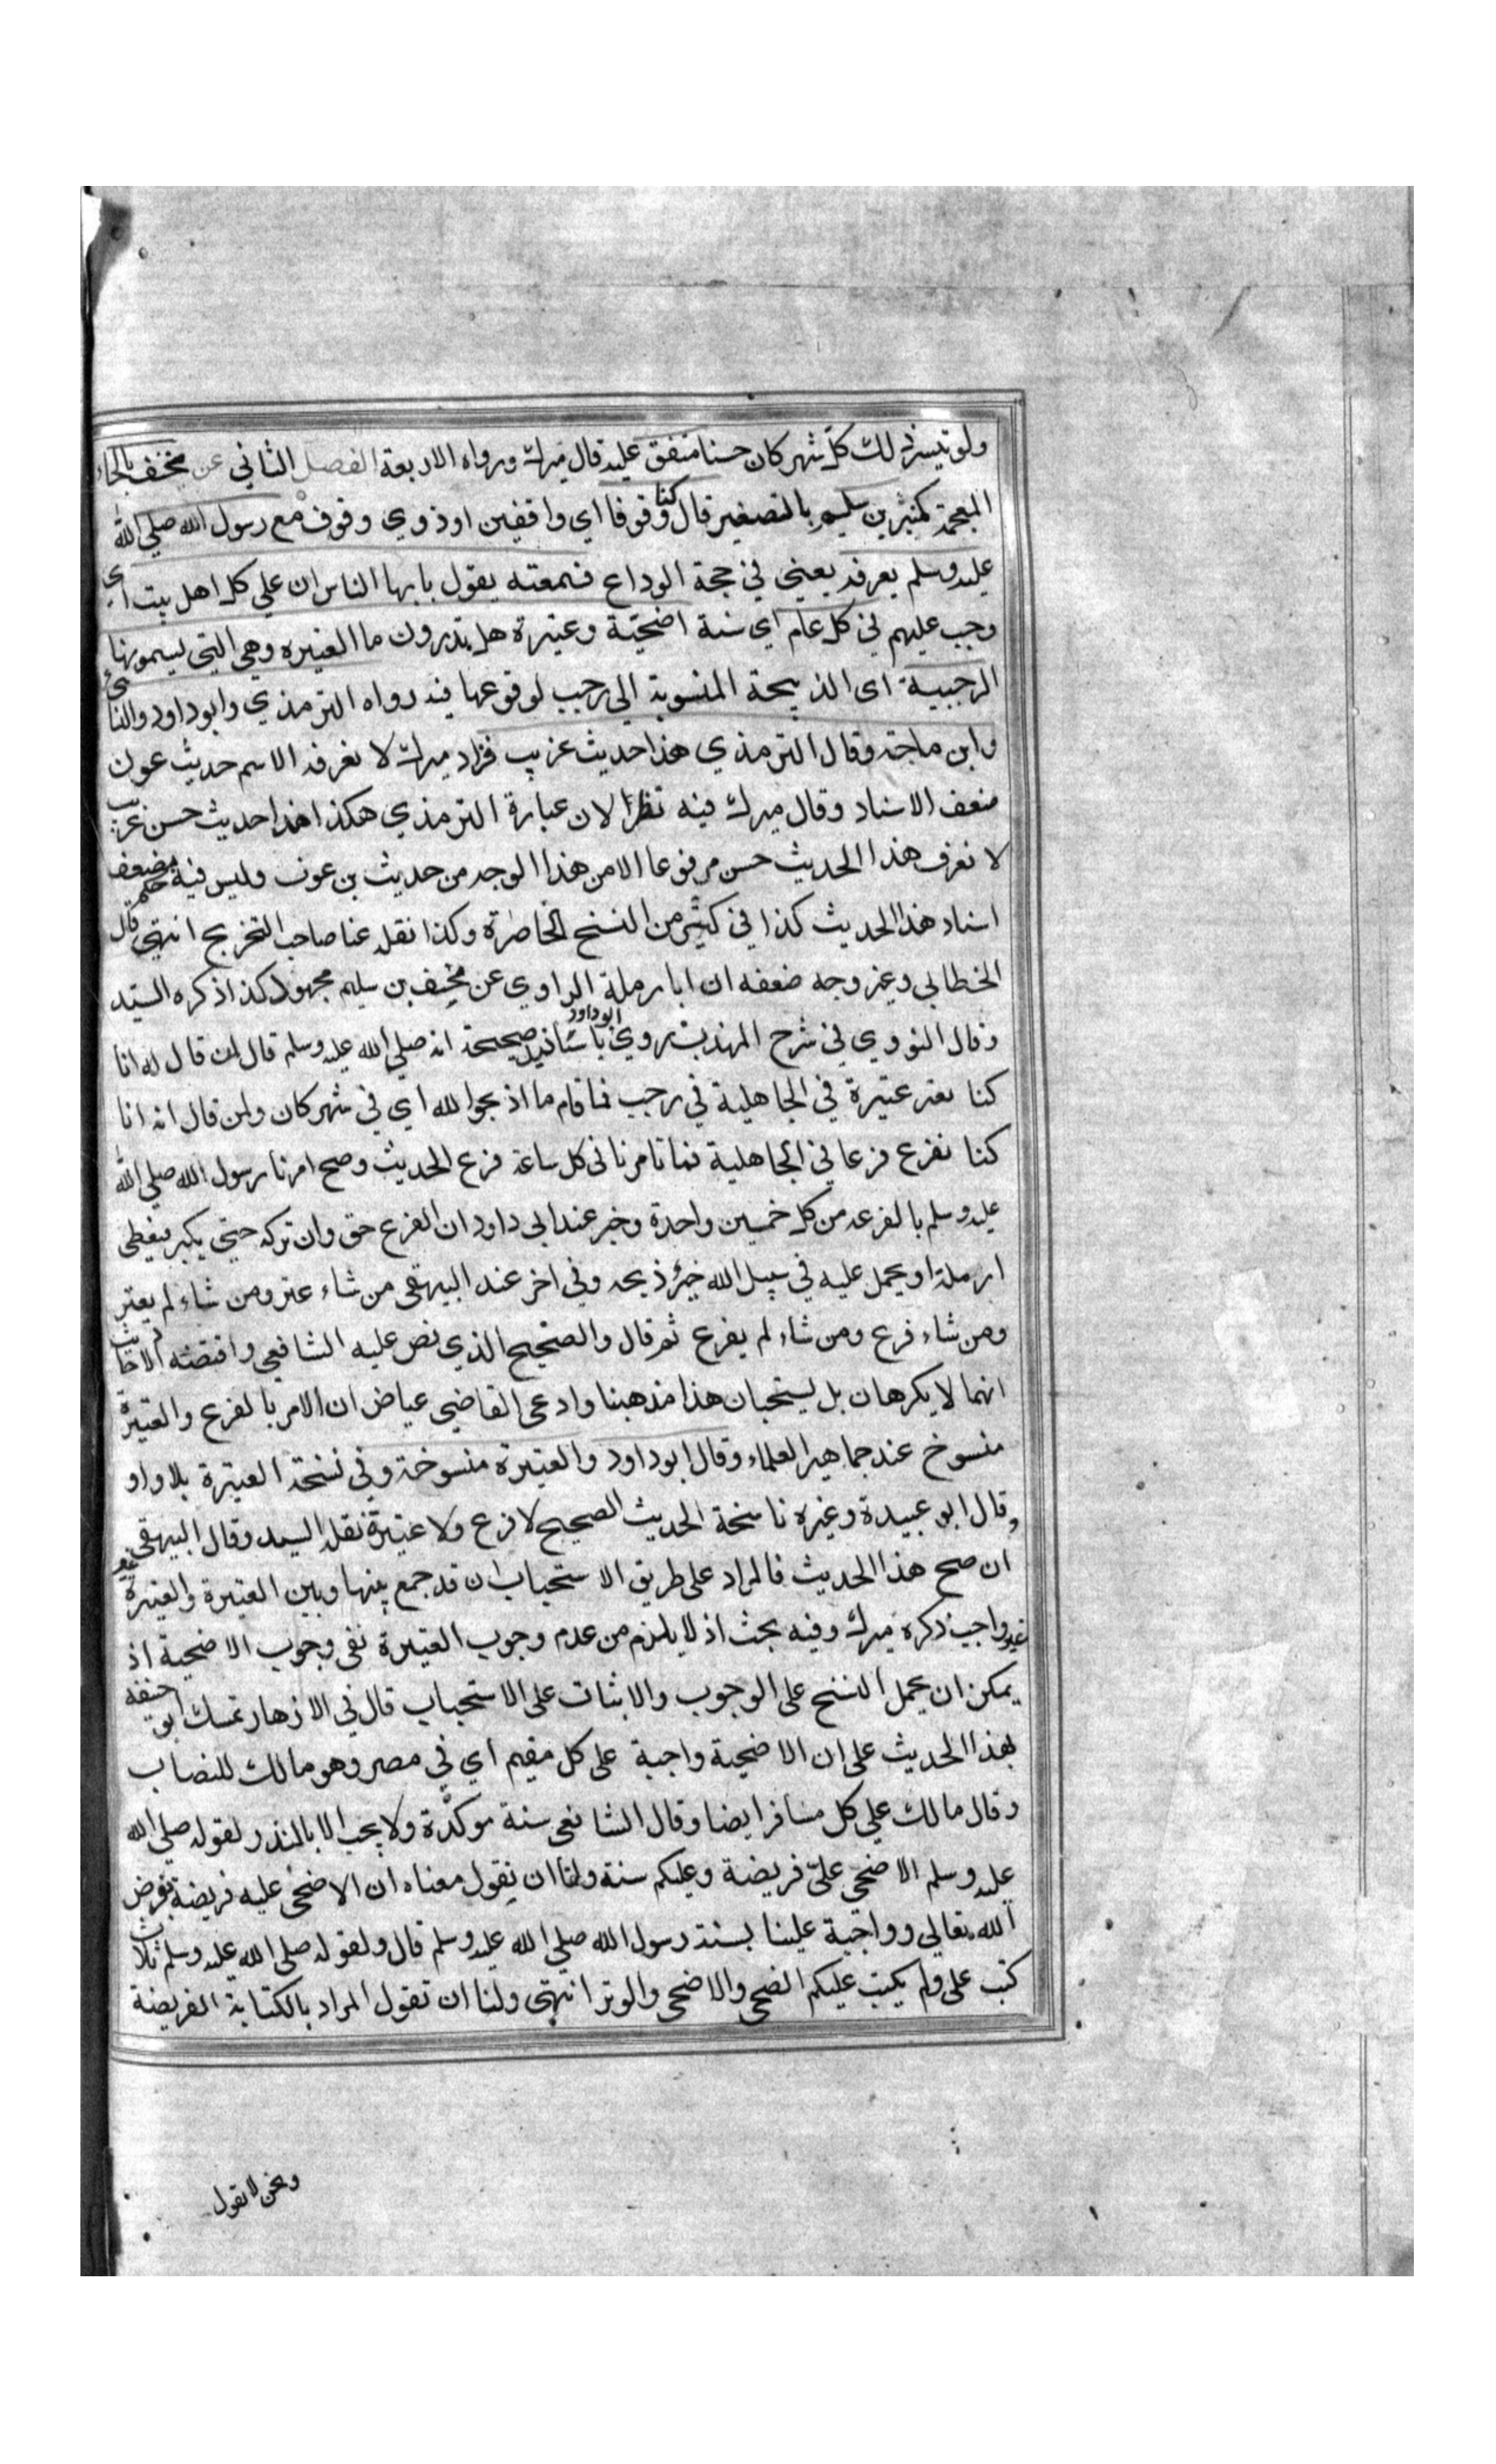 ولو تيسر ذلك كل شهر كان حسنا متفق عليه قال ميرك ورواه الاربعة الفصل الثاني عن مخنف بالخاء
المعجمة كمنبر بن سليم بالتصغير قال كنا وقوفا اي واقفين او ذوي وقوف مع رسول الله صلى الله
عليه وسلم بعرفة يعني في حجة الوداع فسمعته يقول يا ايها الناس ان على كل اهل بيت اي
وجب عليهم في كل عام اي سنة اضحية وعتيرة هل تدرون ما العتيره وهي التي يسمونها
الرجبية اى الذبيحة المنسوبة الى رجب لوقوعها فيه رواه الترمذي وابو داود والنسائي
وابن ماجة وقال الترمذي هذا حديث غريب فزاد ميرك لا نعرفه الا من حديث عون
ضعف الاسناد وقال ميرك فيه نظر لان عبارة الترمذي هكذا هذا حديث حسن غريب
لا نعرف هذا الحديث حسن مرفوعا الا من هذا الوجه من حديث بن عون وليس فيه حكم بضعف
اسناد هذا الحديث كذا في كثير من النسخ الحاضرة وكذا نقله عنا صاحب التخريج انتهى قال
الخطابي وغيره وجه ضعفه ان ابا رملة الراوي عن مخنف بن سليم مجهول كذا ذكره السيد
وقال النووي في شرح المهذب روي ابو داود باسانيد صحيحة انه صلى الله عليه وسلم قال لمن قال له انا
كنا نعتر عتيرة في الجاهلية في رجب فما تامرنا اذبحوا لله اي في شهر كان ولمن قال انه انا
كنا نفرع فرعا في الجاهلية فما تامرنا في كل ساعة فرع الحديث وصح امرنا رسول الله صلى الله
عليه وسلم بالفرعه من كل خمسين واحدة وخبر عند ابى داود ان الفرع حق وان تركه حتى يكبر فيعطى
ارملة او يحمل عليه في سبيل الله خير ذبحه وفي اخر عند البيهقى من شاء عتر ومن شاء لم يعتر
ومن شاء فرع ومن شاء لم يفرع ثم قال والصحيح الذي نص عليه الشافعي واقتضته الاحاديث
انهما لا يكرهان بل يستحبان هذا مذهبنا وادعى القاضي عياض ان الامر بالفرع والعتيرة
منسوخ عند جماهير العلماء وقال ابو داود والعتيرة منسوخة وفي نسخة العتيرة بلا واو
وقال ابو عبيدة وغيره ناسخة الحديث الصحيح لا فرع ولا عتيرة نقله السيد وقال البيهقى
ان صح هذا الحديث فالمراد على طريق الاستحباب ان قد جمع بينها وبين العتيرة والعتيرة غير
غير واجب ذكره ميرك وفيه بحث اذ لا يلزم من عدم وجوب العتيرة نفى وجوب الاضحية اذ
يمكن ان يحمل النسخ على الوجوب والاثبات على الاستحباب قال في الازهار تمسك ابو حنيفه
بهذا الحديث على ان الاضحية واجبة على كل مقيم اي في مصر وهو مالك للنصاب
وقال مالك على كل مسافر ايضا وقال الشافعى سنة موكدة ولا يجب الا بالنذر لقوله صلى الله
عليه وسلم الاضحى علي فريضة وعليكم سنة ولنا ان نقول معناه ان الاضحى عليه فريضة بفرض
الله تعالى وواجبة علينا بسنة رسول الله صلى الله عليه وسلم قال ولقوله صلى الله عليه وسلم ثلاث
كتب على ولم يكتب عليكم الضحى والاضحى والوتر انتهى ولنا ان نقول المراد بالكتابة الفريضة
ونحن لا نقول